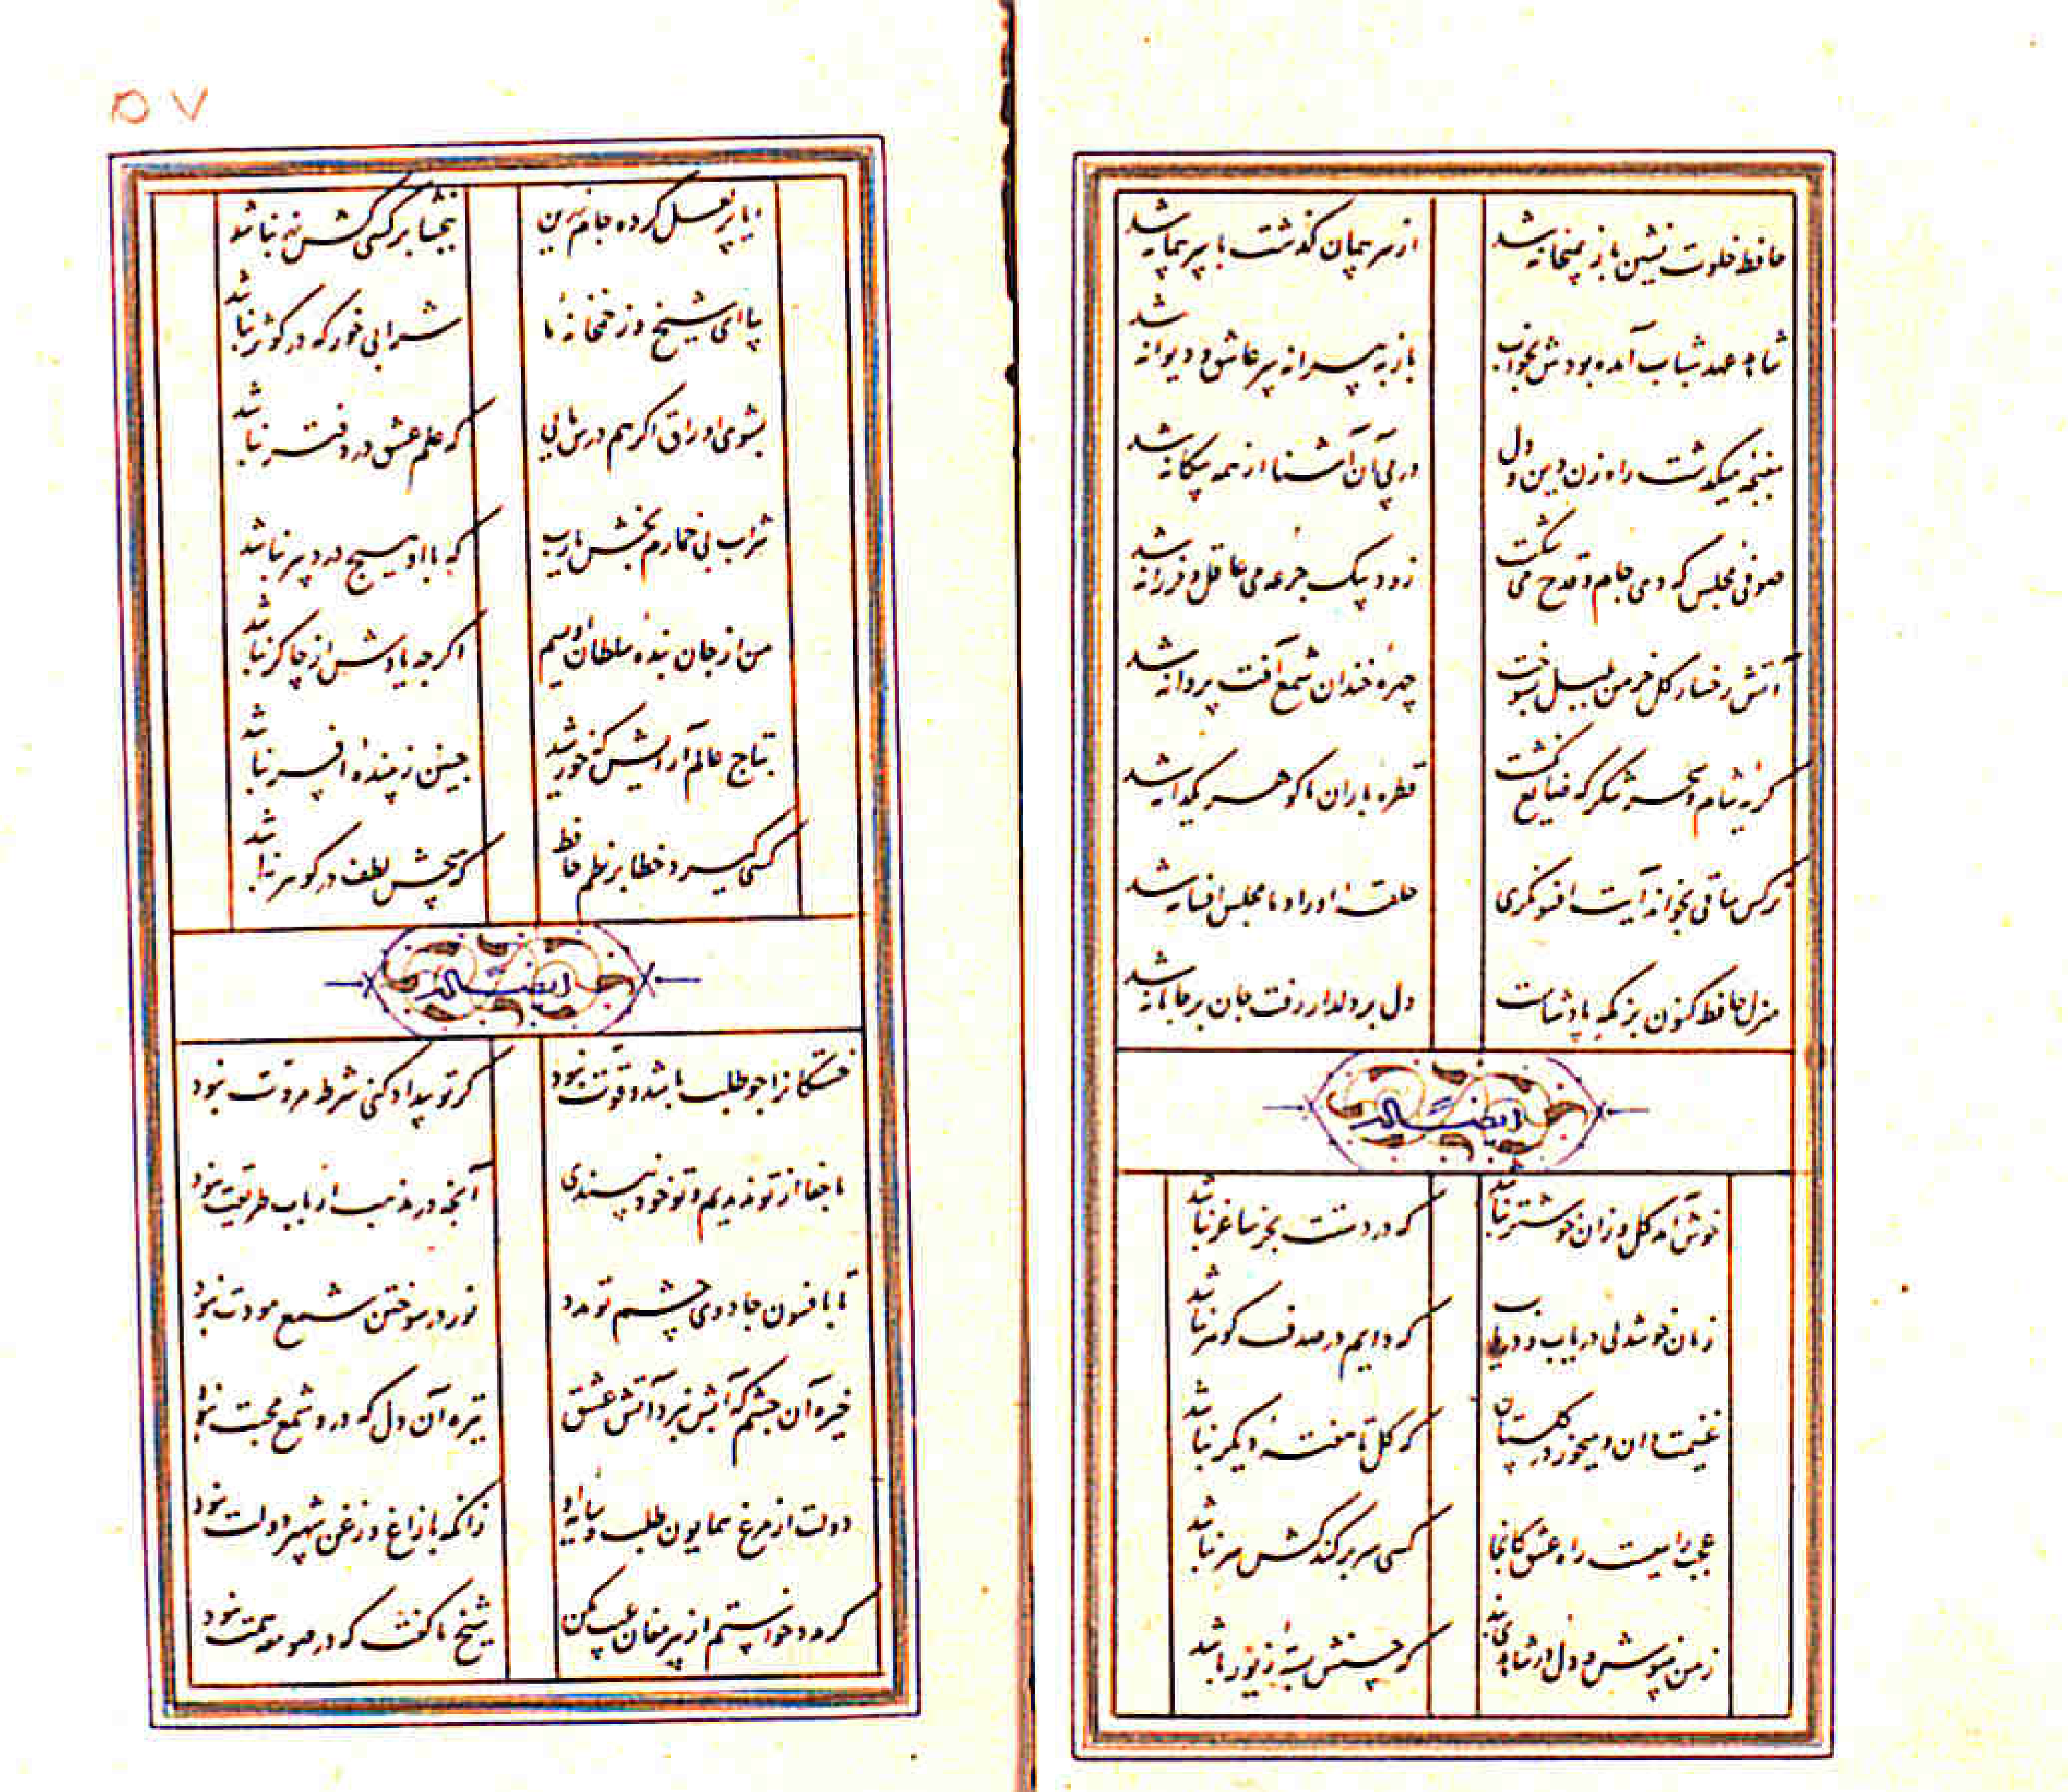 حافظ خلوت نشین باز بمیخانه شد از سر پیمان گذشت با سر پیمانه شد
شاهد عهد شباب آمده بودش بخواب باز به پیرانه سر عاشق و دیوانه شد
مغبچه میگذشت راه زن دین و دل در پی آن آشنا از همه بیگانه شد
صوفی مجلس که دی جام و قدح می شکست دوش بیک جرعه می عاقل و فرزانه شد
آتش رخسار گل خرمن بلبل بسوخت چهره خندان شمع آفت پروانه شد
گریه شام و سحر شکر که ضایع نگشت قطره باران ما گوهر یکدانه شد
نرکس ساقی بخواند آیت افسونگری حلقه اوراد ما مجلس افسانه شد
منزل حافظ کنون بزمگه پادشاست دل بر دلدار رفت جان بر جانانه شد
ایضاً له
خوش آمد گل وزان خوشتر نباشد که در دستت بجز ساغر نباشد
زمان خوشدلی دریاب و دریاب که دایم در صدف گوهر نباشد
غنیمت دان و میخور در گلستان که گل تا هفته دیگر نباشد
عجب راهیست راه عشق کانجا کسی سر بر کند کش سر نباشد
ز من بنیوش و دل در شاهدی بند که حسنش بسته زیور نباشد
ایا پر لعل کرده جام زرین ببخشا بر کسی کش زر نباشد
بیا ای شیخ و از خمخانه ما شرابی خور که در کوثر نباشد
بشوی اوراق اگر هم درس مایی که علم عشق در دفتر نباشد
شراب بی خمارم بخش یارب که با او هیچ درد سر نباشد
من از جان بنده سلطان اویسم اگرچه یادش از چاکر نباشد
بتاج عالم آرایش که خورشید چنین زیبنده افسر نباشد
کسی گیرد خطا بر نظم حافظ که هیچش لطف در گوهر نباشد
ایضاً له
خستگانرا چو طلب باشد و قوت نبود گر تو بیداد کنی شرط مروت نبود
ما جفا از تو ندیدیم و تو خود نپسندی آنچه در مذهب ارباب طریقت نبود
تا بافسون جادوی چشم تو مدد نور در سوختن شمع مودت نبود
خیره آن چشم که آبش نبرد آتش عشق تیره آن دل که درو شمع محبت نبود
دولت از مرغ همایون طلب و سایه او زانکه با زاغ و زغن شهپر دولت نبود
گر مدد خواستم از پیر مغان عیب مکن شیخ ما گفت که در صومعه همت نبود
۵۷